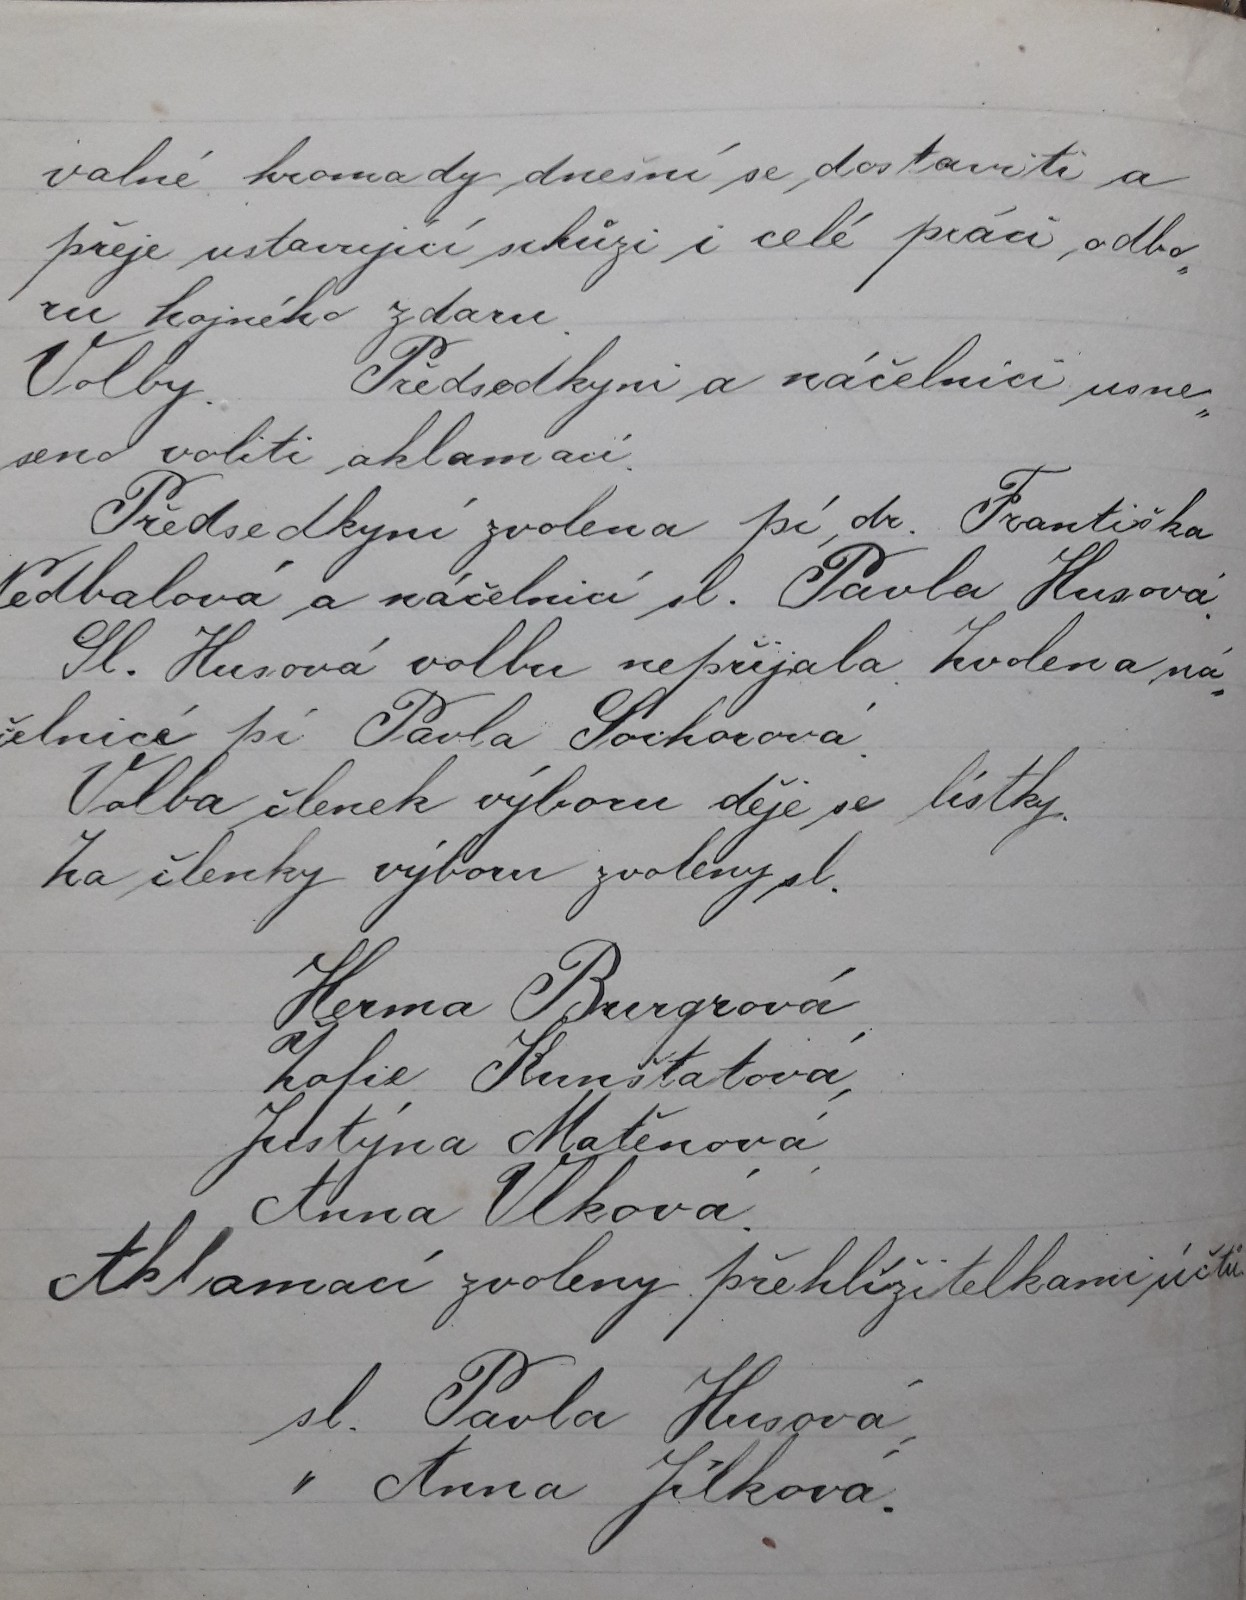 valné hromady dnešní se dostaviti a
přeje ustavující schůzi i celé práci odbo„
ru hojného zdaru.
Volby. Předsedkyni a náčelnici usne„
seno voliti aklamací.
Předsedkyní zvolena pí dr. Františka
Nedbalová a náčelnicí sl. Pavla Husová.
Sl. Husová volbu nepřijala. Zvolena ná„
čelnicí pí Pavla Sochorová.
Volba členek výboru děje se lístky.
Za členky výboru zvoleny sl.
Herma Burgrová,
Žofie Kunštatová,
Justýna Matěnová,
Anna Vlková.
Aklamací zvoleny přehlížitelkami účtů
sl. Pavla Husová,
" Anna Jílková.